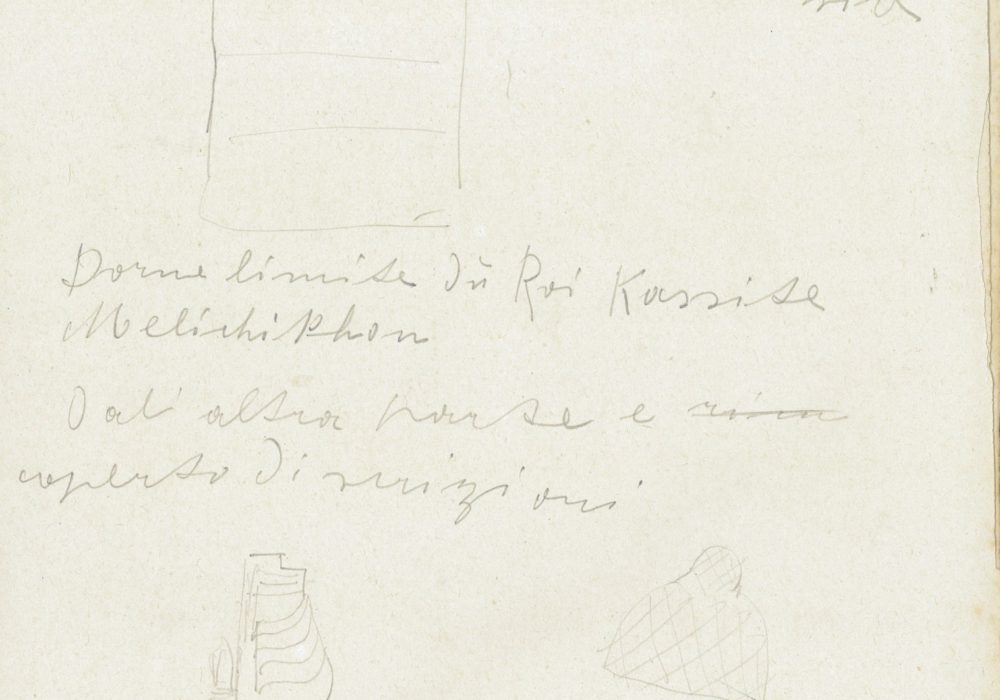 Borne limite du Roi Kassite
Melichikhon
Dal' altra parte e
coperto di scrizioni